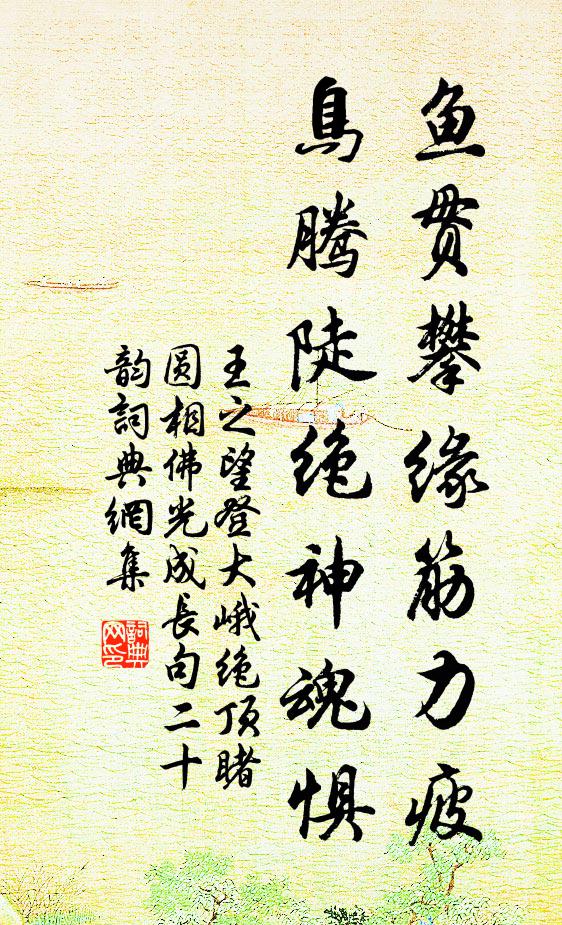 鱼贯攀缘筋力疲
鸟腾陡绝神魂惧
王之望登大峨绝顶睹
圆相佛光成長句二十
韵詞典網集
詞典
网印